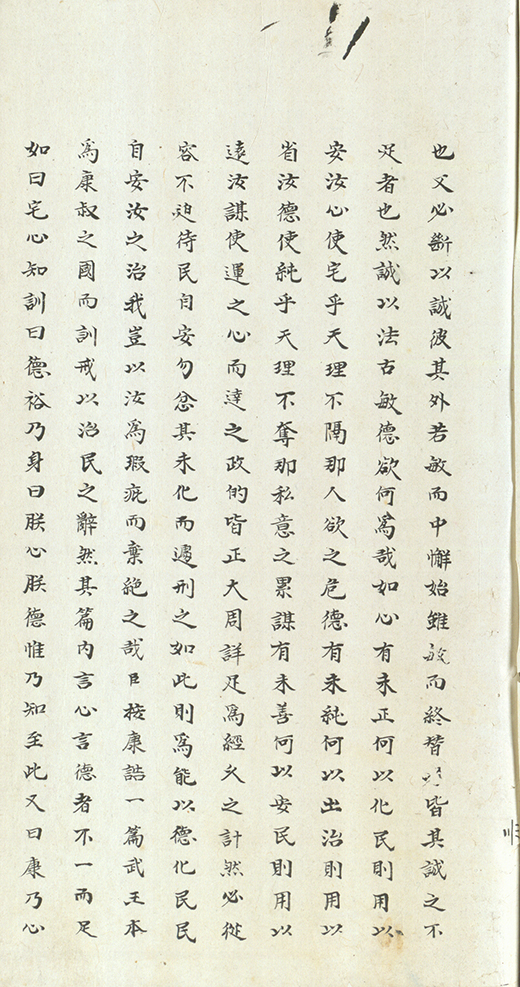 也又必斷以誠彼其外若敏而中懈始雖敏而終替皆其誠之不
足者也然誠以法古敏德欲何為哉如心有未正何以化民則用以
安汝心使宅乎天理不隔那人欲之危德有未純何以出治則用以
省汝德使純乎天理不奪那私意之累謀有未善何以安民則用以
遠汝謀使運之心而達之政的皆正大周詳足爲經久之計然必從
容不迫待民自安勿忿其未化而遽刑之如此則爲能以德化民民
自安汝之治我豈以汝爲瑕疵而棄絶之哉臣按康誥一篇武王本
爲康叔之國而訓戒以治民之辭然其篇内言心言德者不一而足
如曰宅心知訓曰德裕乃身曰朕心朕德惟乃知至此又曰康乃心